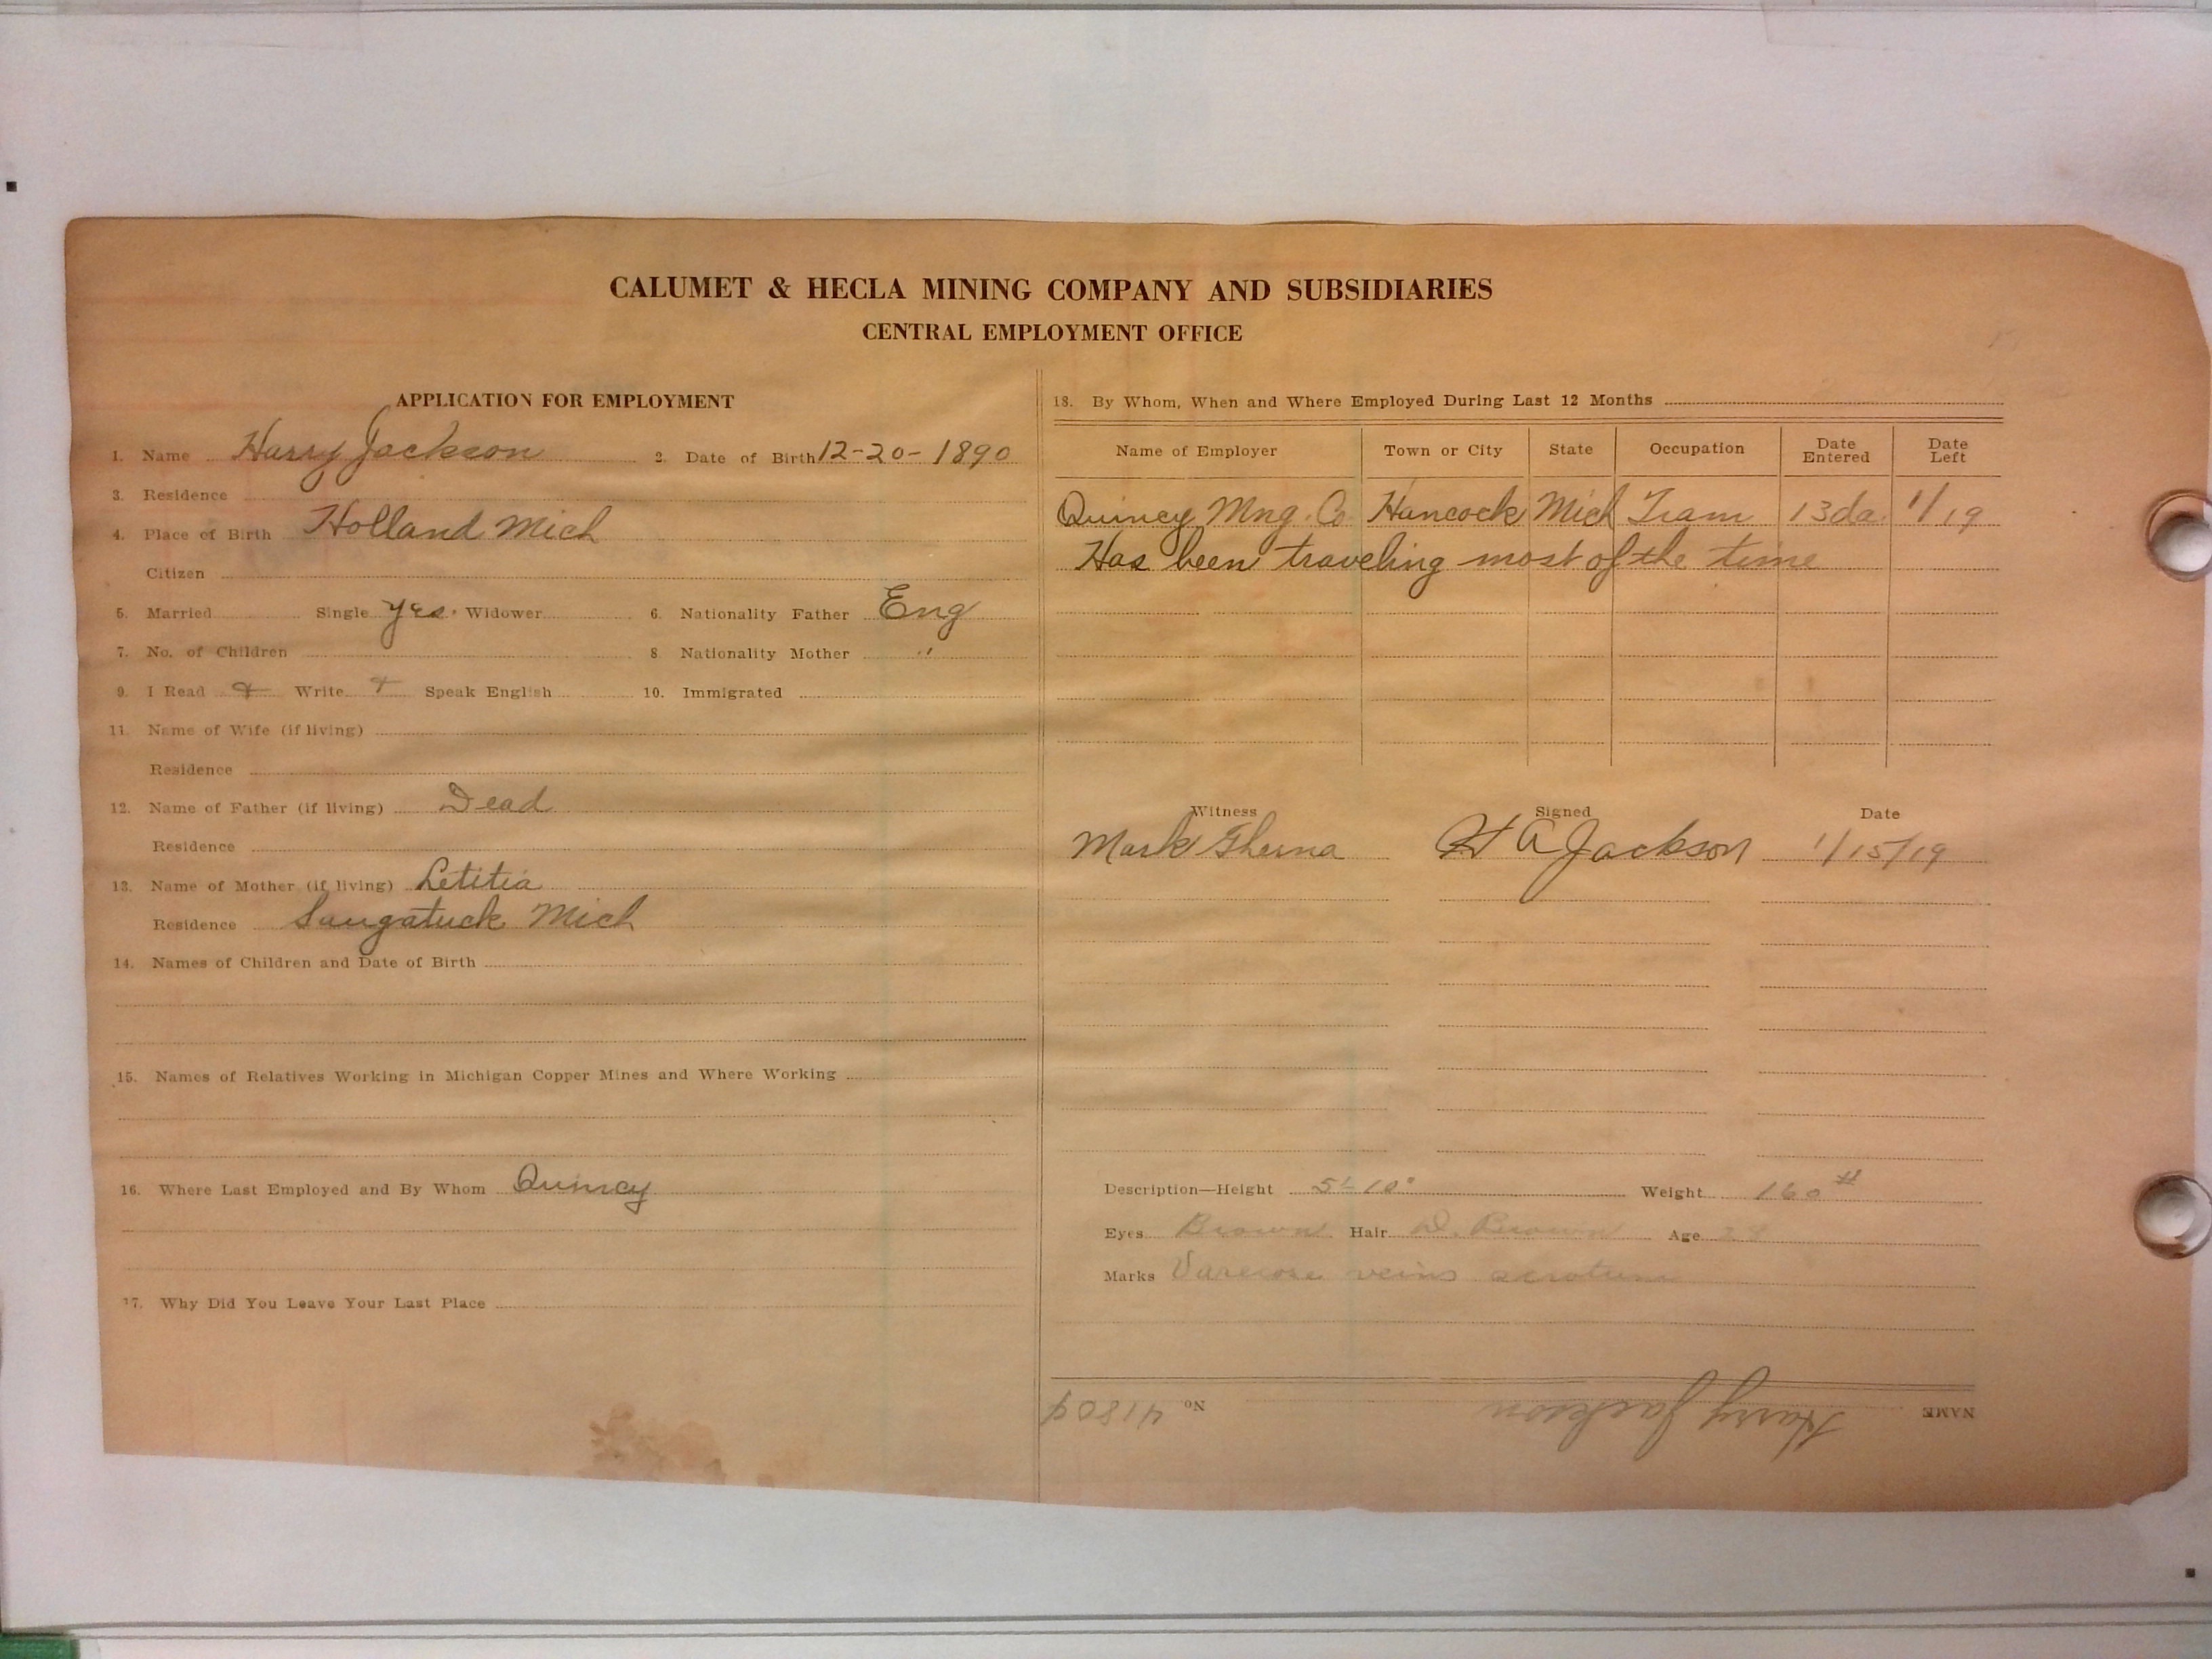 CALUMET & HECLA MINING COMPANY AND SUBSIDIARIES
CENTRAL EMPLOYMENT OFFICE
APPLICATION FOR EMPLOYMENT
1. Name Harry Jackson 2. Date of Birth 12-20-1890
3. Residence
4. Place of Birth Holland Mich
Citizen
5. Married Single yes. Widower 6. Nationality Father Eng
7. No. of Children 8 Nationality Mother "
9. I Read Write Speak English 10. Immigrated
11. Name of Wife (if living)
Residence
12. Name of Father (if living) Dead
Residence
13. Name of Mother (if living) Letitia
Residence Saugatuck Mich
14. Names of Children and Date of Birth
15. Names of Relatives Working in Michigan Copper Mines and Where Working
16. Where Last Employed and By Whom Quincy
17. Why Did You Leave Your Last Place
18. By Whom, When and Where Employed During Last 12 Months
Name of Employer Town or City State Occupation Date Entered Date Left
Quincy Mng. Co Hancock Mich Tram 13da. 1/19
Has been traveling most of the time
Witness Signed Date
Mark H A Jackson 1/15/19
Description—Height 5' 10" Weight 160 #
Eyes Brown Hair D. Brown Age
Marks Varicose veins scrotum
NAME Harry Jackson No. 41804